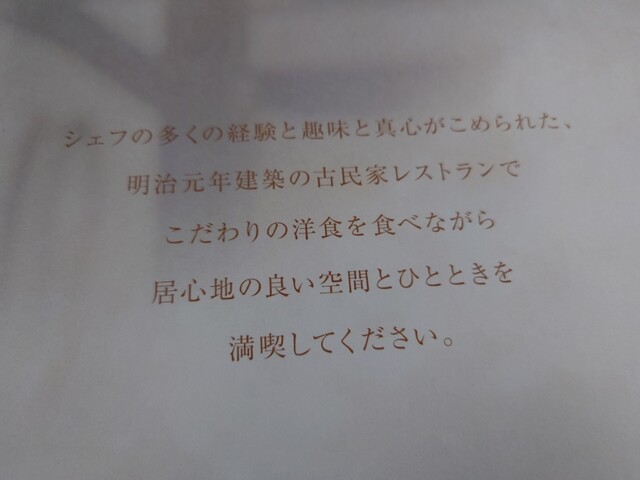 シェフの多くの経験と趣味と真心がこめられた、
明治元年建築の古民家レストランで
こだわりの洋食を食べながら
居心地の良い空間とひとときを
満喫してください。